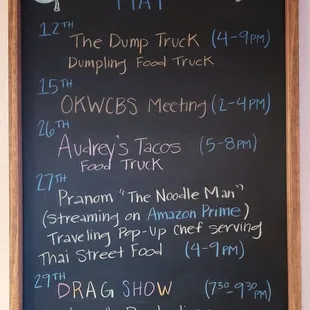 MAY
12TH
The Dump Truck (4-9PM)
Dumpling Food Truck
15TH
OKWCBS Meeting (2-4PM)
26TH
Audrey's Tacos (5-8PM)
Food Truck
27TH
Pranom "The Noodle Man"
(streaming on Amazon Prime)
Traveling Pop-Up chef serving
Thai Street Food (4-9PM)
29TH
DRAG SHOW (7:30-9:30PM)